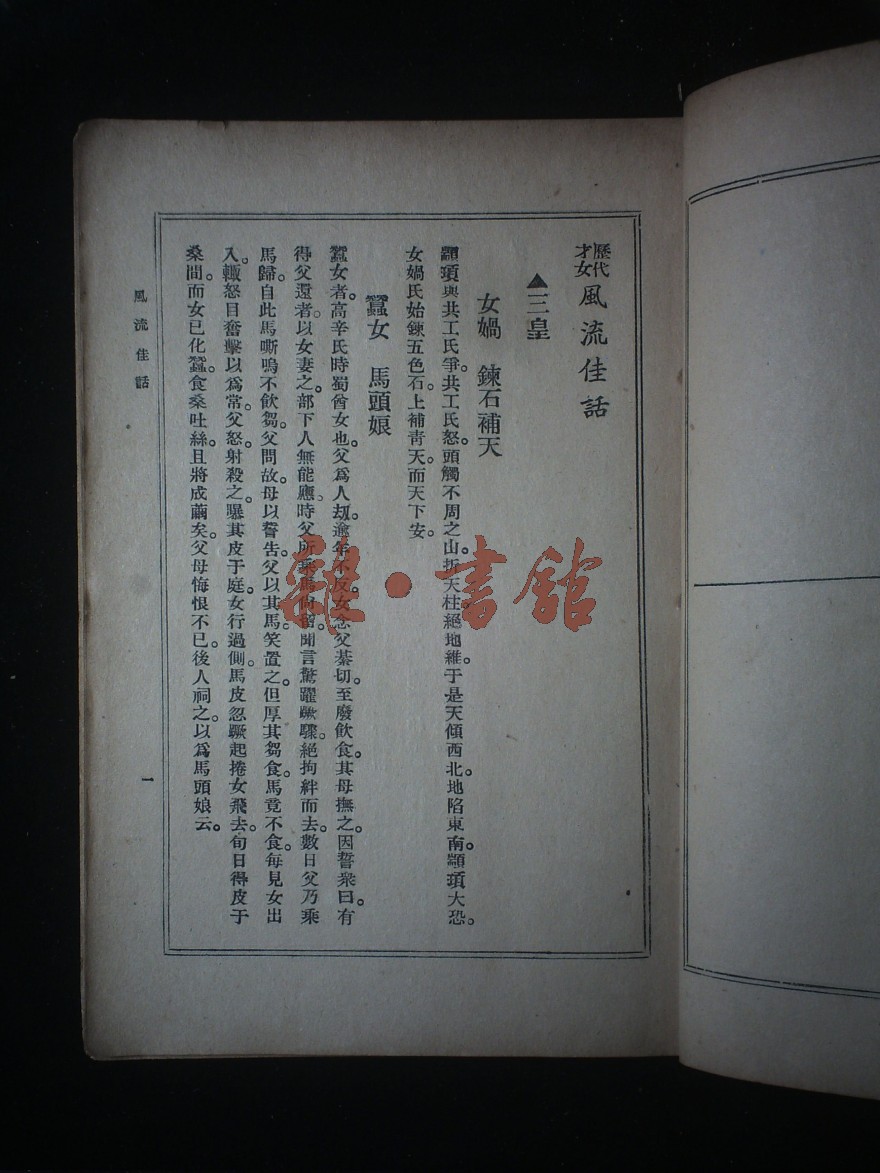 歷代才女風流佳話
▲三皇
女媧　鍊石補天
顓頊與共工氏爭。共工氏怒。頭觸不周之山。折天柱。絕地維。于是天傾西北。地陷東南。顓頊大恐。
女媧氏始鍊五色石。上補靑天。而天下安。
蠶女　馬頭娘
蠶女者。高辛氏時蜀酋女也。父爲人刼。逾年不反。女念父綦切。至廢飲食。其母撫之。因誓衆曰。有
得父還者。以女妻之。部下人無能應。時父所乘馬尙留。聞言驚躍。絕拘絆而去。數日父乃乘
馬歸。自此馬嘶鳴不飲芻。父問故。母以誓告。父以其馬。笑置之。但厚其芻食。馬竟不食。每見女出
入。輙怒目奮擊以爲常。父怒。射殺之。曝其皮于庭。女行過側。馬皮忽蹶起捲女飛去。旬日得皮于
桑間。而女已化蠶。食桑吐絲。且將成繭矣。父母悔恨不已。後人祠之。以爲馬頭娘云。
風流佳話
一
雜·書館